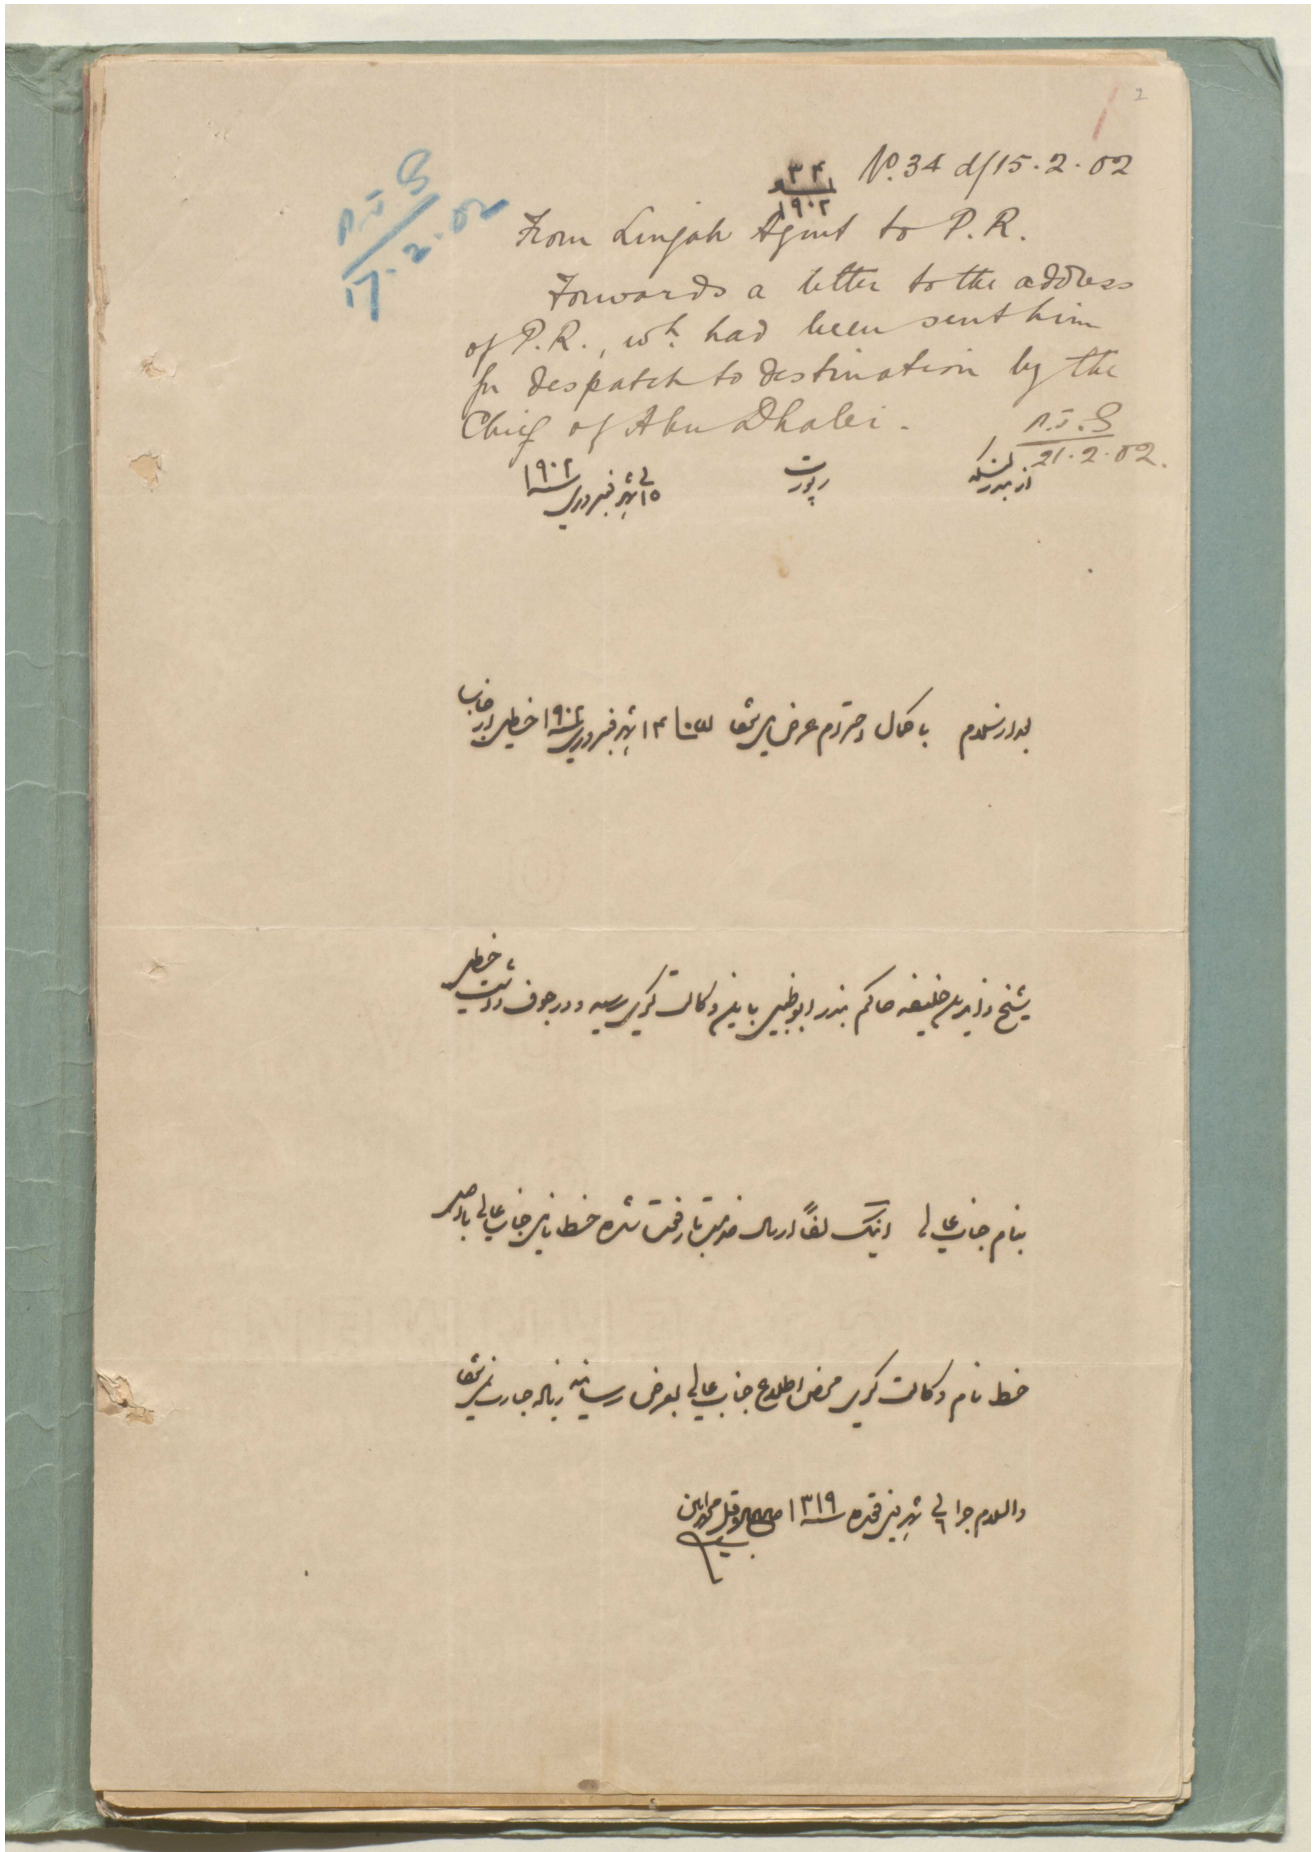 2
No. 34 d/15.2.02
۳۴
۱۹۰۲
P.J.G
17.2.02
From Lingah Agent to P.R.
Forwards a letter to the address
of P.R., wh. had been sent him
for despatch to destination by the
Chief of Abu Dhabi.
P.J.G
21.2.02.
از بندر لنگه
رپورت
۱۵ شهر فبروری سنه ۱۹۰۲
بعد از سلام با کمال احترام عرض می‌شود ۱۴ شهر فبروری سنه ۱۹۰۲ خطی از جانب
شیخ زاید بن خلیفه حاکم بندر ابوظبی باین وکالت گری رسیه و در جوف داشت خطی
بنام جناب عالی اینک لفاً ارسال شده خط جناب عالی با اصل
خط نام وکالت گری محض اطلاع جناب عالی بعرض رسانید زیاده جسارت نمی‌شود
والسلام حرر فی ٦ شهر ذیقعده سنه ۱۳۱۹